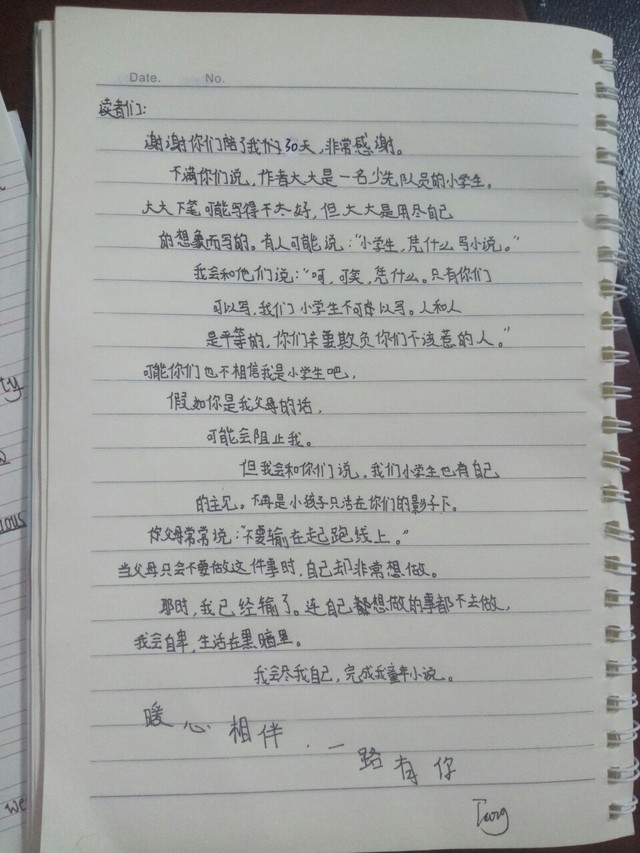 Date. No.
读者们:
谢谢你们陪了我们30天,非常感谢。
不满你们说,作者大大是一名少先队员的小学生。
大大下笔可能写得不太好,但大大是用尽自己
的想象而写的。有人可能说:“小学生,凭什么写小说。”
我会和他们说:“呵,可笑,凭什么。只有你们
可以写,我们小学生不可以写。人和人
是平等的,你们未要欺负你们不该惹的人。”
可能你们也不相信我是小学生吧,
假如你是我父母的话,
可能会阻止我。
但我会和你们说,我们小学生也有自己
的主见。不再是小孩子只活在你们的影子下。
你父母常常说:“不要输在起跑线上。”
当父母只会不要做这件事时,自己却非常想做。
那时,我已经输了。连自己都想做的事都不去做,
我会自卑,生活在黑暗里。
我会尽我自己,完成我童年小说。
暖心相伴.一
路有你
ty
ious
we